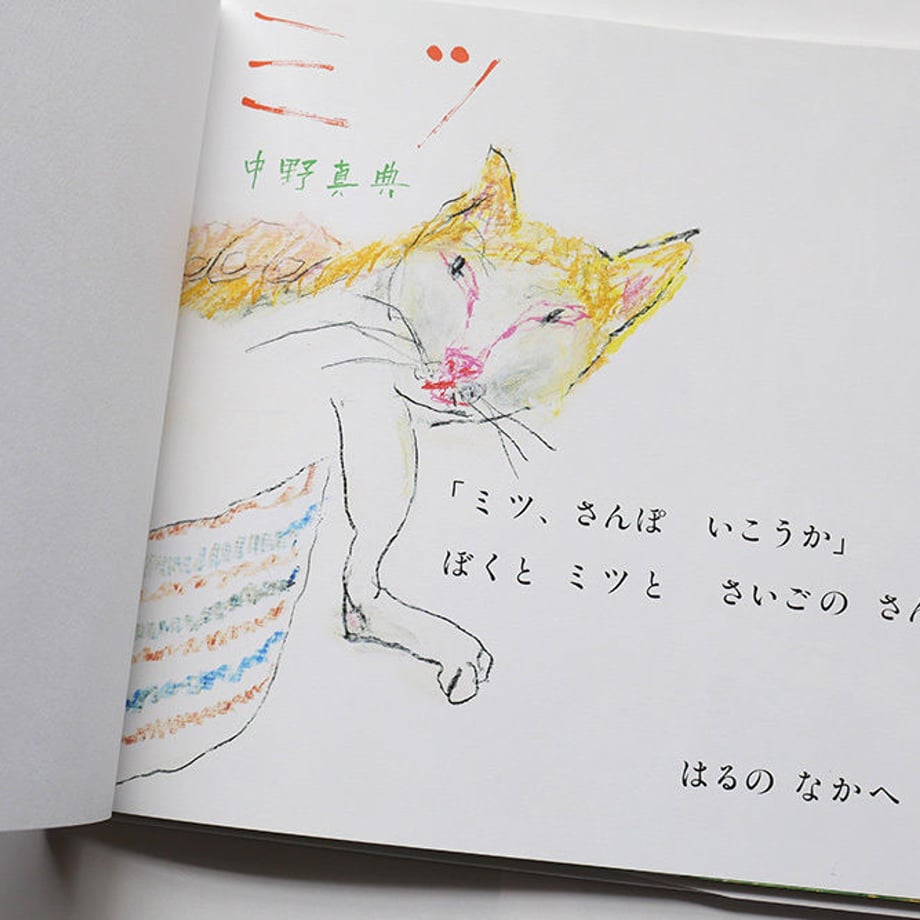 ミツ
中野真典
「ミツ、さんぽ　いこうか」
ぼくと ミツと　さいごの さ
はるの なかへ